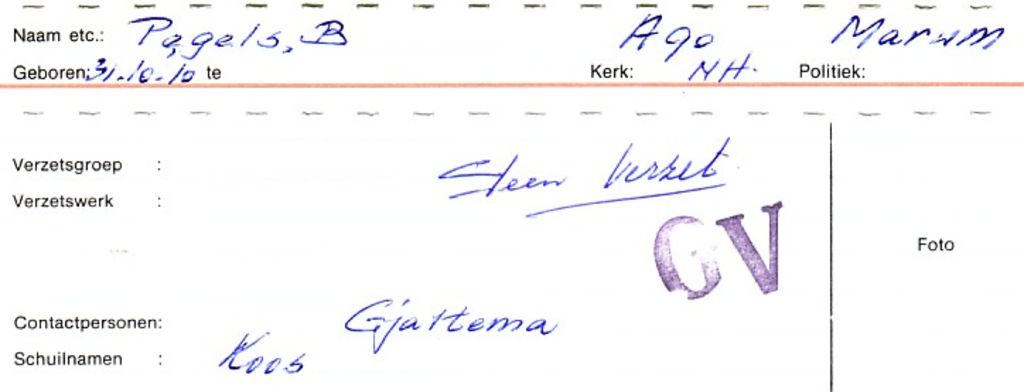 Naam etc.: Pagels, B Ago Marum
Geboren: 31-10-10 te Kerk: NH. Politiek:
Verzetsgroep : Steen Verzet
Verzetswerk :
GV
Foto
Contactpersonen: Gjaltema
Schuilnamen : Koos